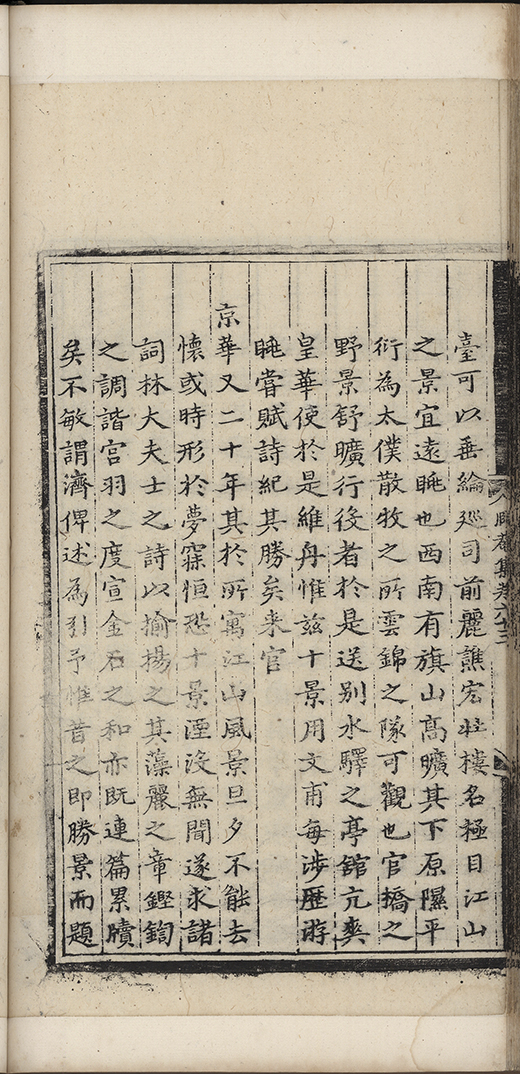 臺可以垂綸廵司前麗譙宏壯樓名極目江山
之景宜遠眺也西南有旗山高曠其下原隰平
衍為太僕散牧之所雲錦之隊可觀也官橋之
野景舒曠行役者於是送别水驛之亭舘亢爽
皇華使於是維舟惟兹十景用文甫每涉歷游
眺嘗賦詩紀其勝矣来官
京華又二十年其於所寓江山風景旦夕不能去
懷或時形於夢寐恒恐十景湮没無聞遂求諸
詞林大夫士之詩以揄揚之其藻麗之章鏗鍧
之調諧宫羽之度宣金石之和亦既連篇累牘
矣不敏謂濟俾述為引予惟昔之即勝景而題
集卷六十三